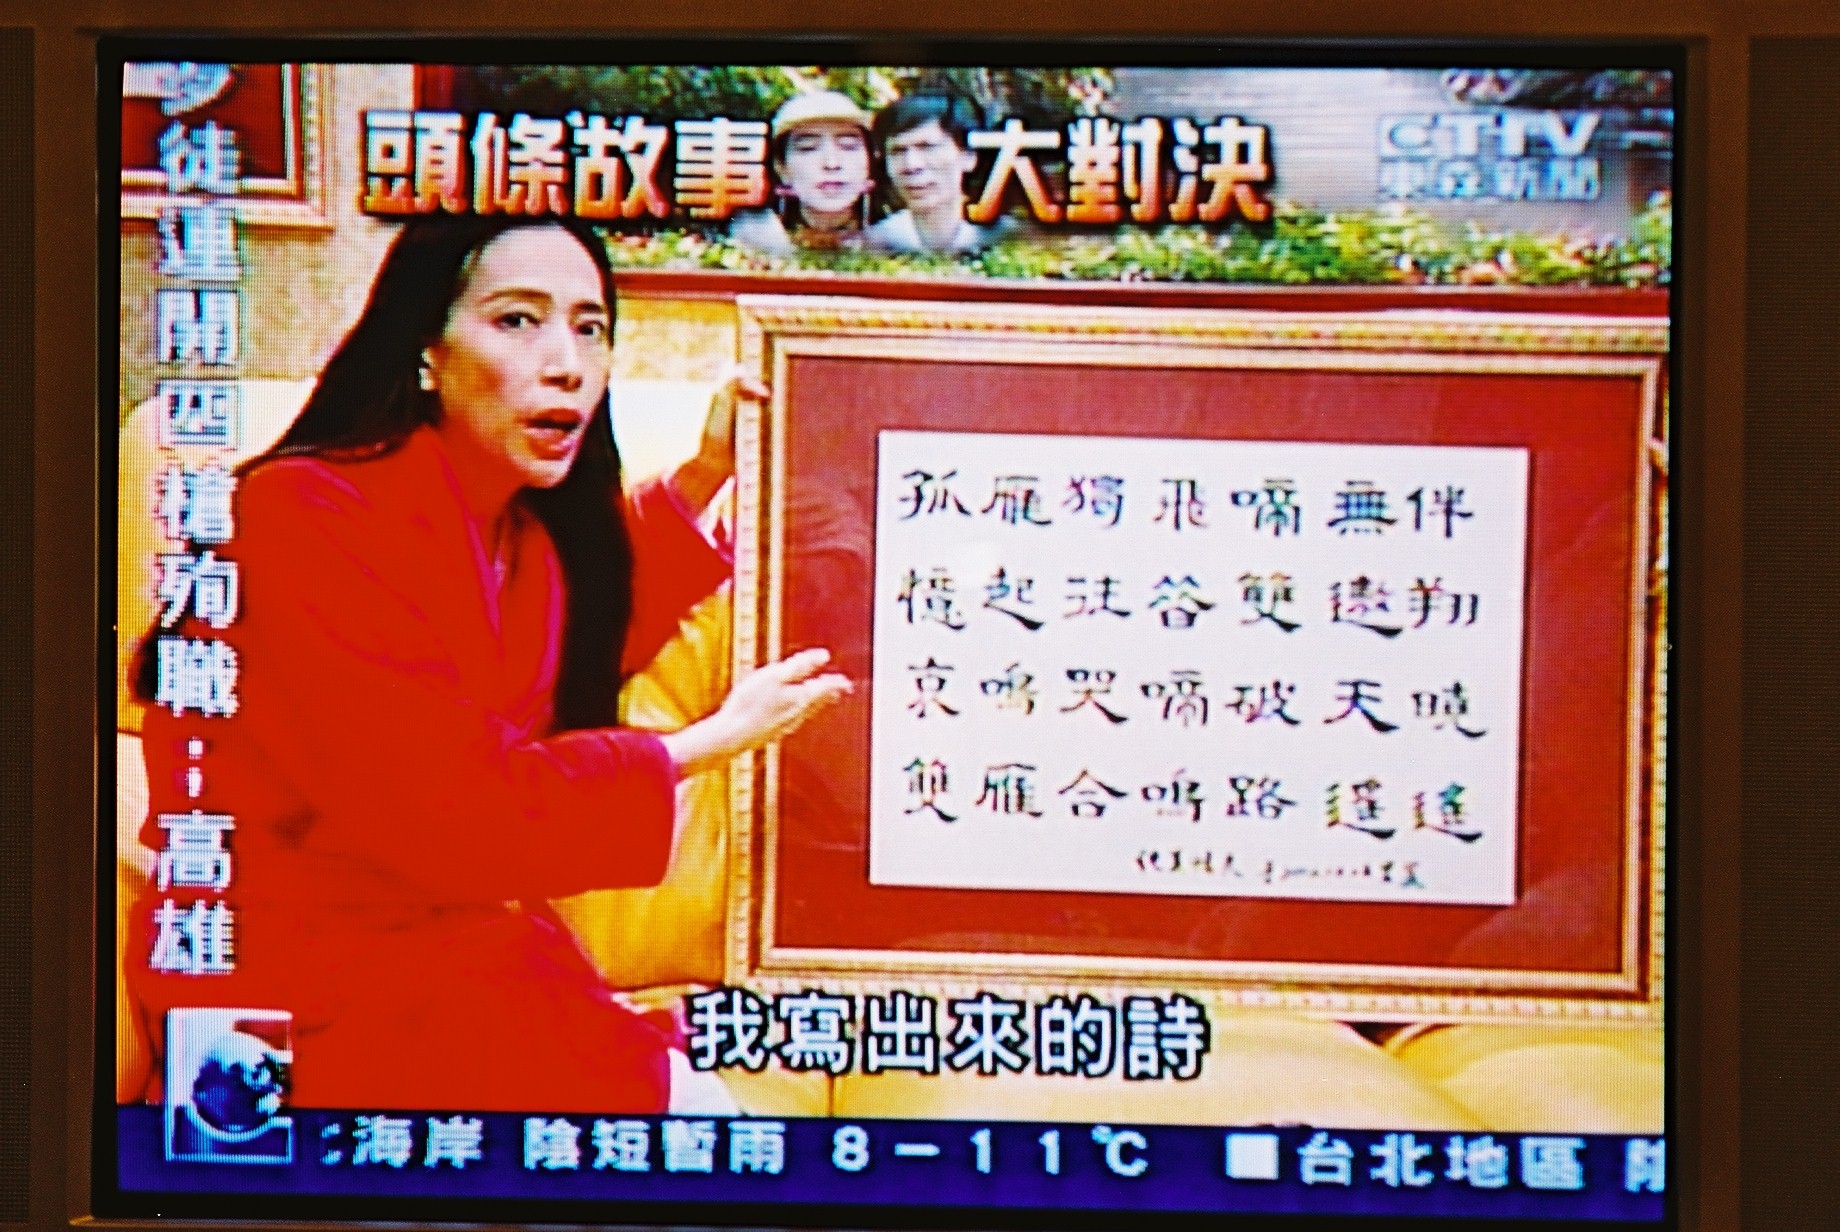 頭條故事大對決
CTTV
東森新聞
徒連開四槍殉職：高雄
孤雁獨飛啼無伴
憶起往昔雙遨翔
哀鳴哭啼破天曉
雙雁合鳴路遙遙
我寫出來的詩
海岸 陰短暫雨 8－11℃ ■台北地區